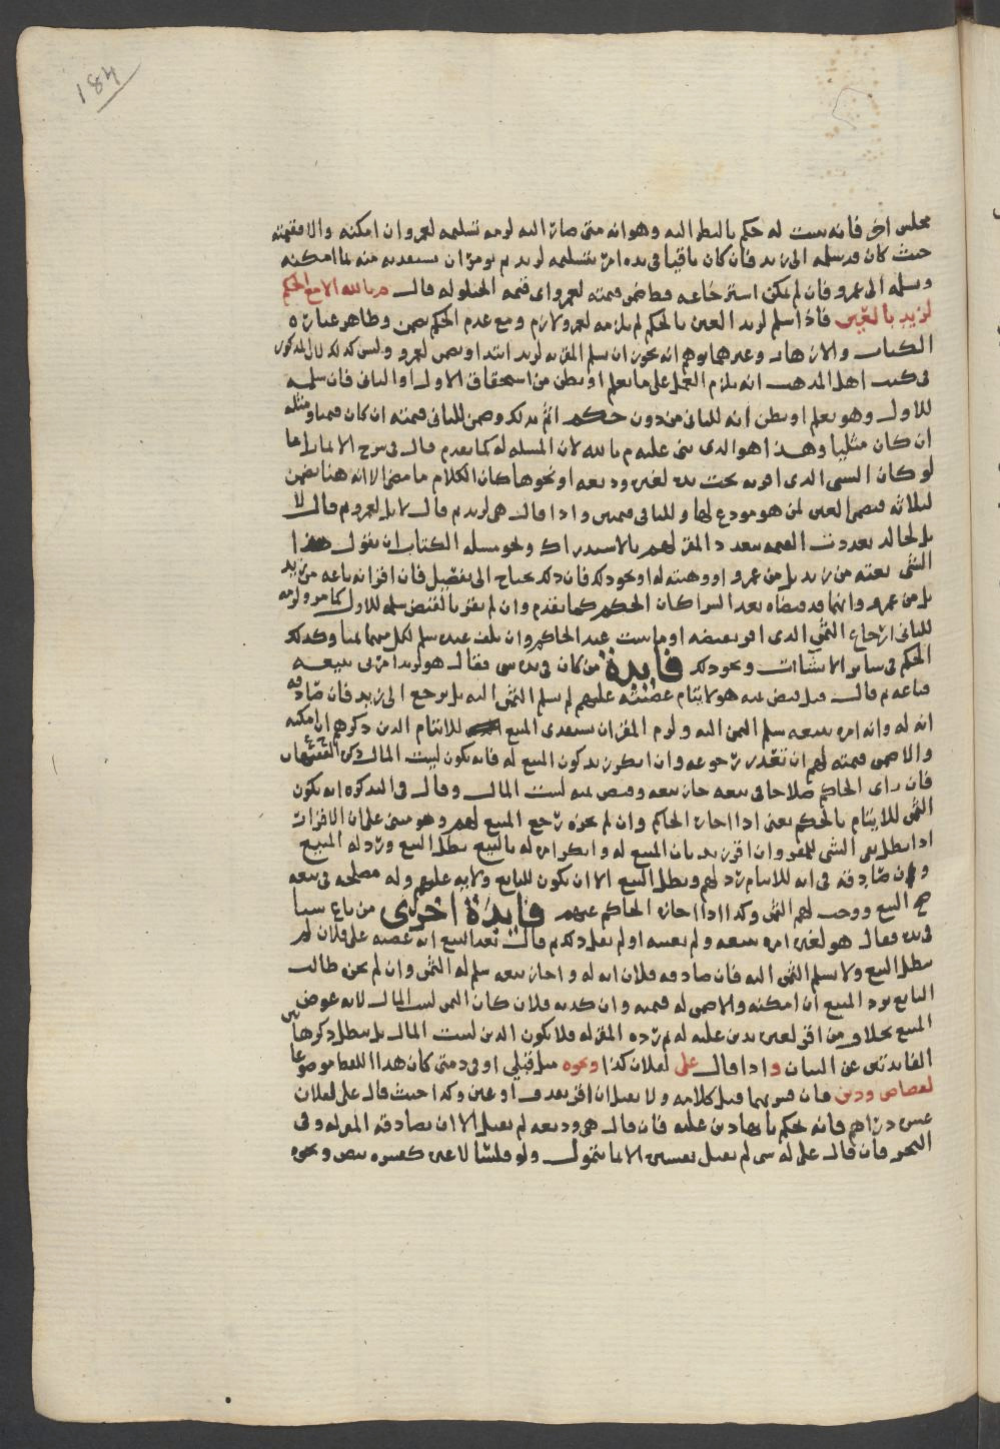 184
مجلس اخر فانه يثبت له حكم بالنظر اليه وهو انه متى صار اليه لزمه تسليمه لعمرو ان امكنه والا فقيمته
حيث كان قد سلمه الى زيد فان كان باقيا في يده امر بتسليمه لزيد ثم يومر ان يستفديه منه بما امكنه
ويسلمه الى عمرو فان لم يمكن استرجاعه فما ضمن قيمته لعمرو اي قيمة الحيلولة قال م بالله الا مع الحكم
لزيد بالعين فاذا سلم لزيد العين بالحكم لم يلزمه لعمرو لازم ومع عدم الحكم يضمن وظاهر عبارة
الكتاب والازهار وغيرهما يوهم انه يجوز ان يسلم المقر به لزيد ابتدا ويضمن لعمرو وليس كذلك لان المذكور
في كتب اهل المذهب انه يلزم العمل على ما يعلم او يظن من استحقاق الاول او الثاني فان سلمه
للاول وهو يعلم او يظن انه للثاني من دون حكم اثم بذلك وضمن للثاني قيمته ان كان قيميا ومثله
ان كان مثليا وهذا هو الذي بنى عليه م بالله لان المسلة له كما تقدم قال في شرح الاثمار اما
لو كان الشي الذي اقر به تحت يده لغير وديعه او نحوها كان الكلام ما مضى الا انه هنا يضمن
لثلاثة فيصير العين لمن هو مودع لها وللباقي قيمتين واذا قال هي لزيد ثم قال لا بل لعمرو ثم قال لا
بل لخالد تعددت القيمة بتعدد المقر لهم بالاستدراك ونحو مسلة الكتاب ان يقول هذا
الشي بعته من زيد بل من عمرو او وهبته له او نحو ذلك فان ذلك يحتاج الى تفصيل فان اقر انه باعه من زيد
بل من عمرو وانهما قد قبضاه بعد الشرا كان الحكم كما تقدم وان لم يقر بالقبض سلمه للاول كما مر ولزمه
للثاني ارجاع الثمن الذي اقر بقبضه او ما يثبت عند الحاكم وان تلفت عينه سلم لكل منهما ثمنا وكذلك
الحكم في ساير الانشاات ونحو ذلك فايدة من كان في يده شي فقال هو لزيد امرني ببيعه
فباعه ثم قال قبل قبض ثمنه هو لايتام غصبته عليهم لم يسلم الثمن اليه بل يرجع الى زيد فان صادقه
انه له وانه امره ببيعه سلم الثمن اليه ولزم المقر ان يستفدي المبيع للايتام الذين ذكرهم ان امكنه
والا ضمن قيمته لهم ان تعذر رجوعه وان انكر زيد كون المبيع له فانه يكون لبيت المال ذكره الفقيهان
فان راى الحاكم صلاحا في بيعه جاز بيعه وقبض ثمنه لبيت المال وقال في التذكرة انه يكون
الثمن للايتام بالحكم يعني اذا اجازه الحاكم وان لم يجزه رجع المبيع لهم وهو مبني على ان الاقرار
اذا بطل بقي الشي للمقر وان اقر زيد بان المبيع له وانكر امره له بالبيع بطل البيع ورد له المبيع
وان صادقه في انه للايتام رد لهم وبطل البيع الا ان يكون للبايع ولاية عليهم وله مصلحة في بيعه
صح البيع ووجب لهم الثمن وكذا اذا اجازه الحاكم عنهم فايدة اخرى من باع شيا
في يده فقال هو لغيري امره ببيعه ولم يعينه او لم يقل ذلك ثم قال بعد البيع انه غصبه على فلان لم
يبطل البيع ولا يسلم الثمن اليه فان صادقه فلان انه له واجاز بيعه سلم له الثمن وان لم يجز طالب
البايع برد المبيع ان امكنه والا ضمن له قيمته وان كذبه فلان كان الثمن لبيت المال لانه عوض
المبيع بخلاف من اقر لغيره بدين عليه له ثم رده المقر له فلا يكون الدين لبيت المال بل يبطل ذكر هاتين
الفايدتين عن البيان واذا قال علي لفلان كذا ونحوه مثل قبلي او في ذمتي كان هذا اللفظ موضوعا
لقصاص ودين فان فسر بهما قبل كلامه ولا يقبل ان اقر بقذف او عين وكذا حيث قال علي لفلان
عشرة دراهم فانه يحكم بانها دين عليه فان قال هي وديعه لم يقبل الا ان يصادقه المقر له وفي
البحر فان قال علي له شي لم يقبل تفسيره الا بما يتمول ولو فلسا لا غير كقشره بيض ونحوه